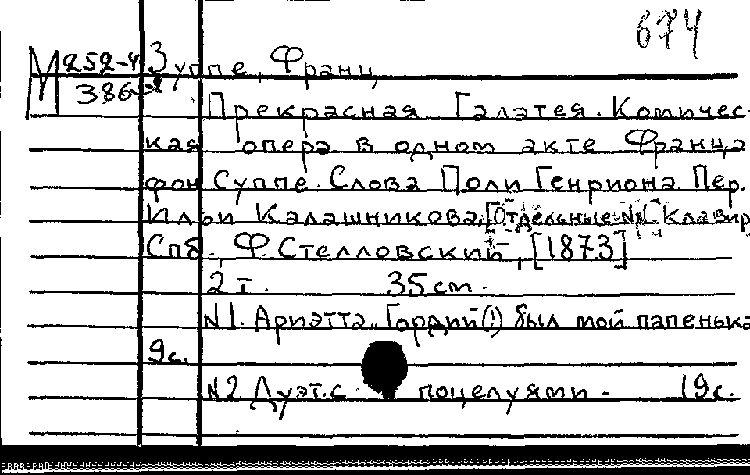 674
М 252-4 Зуппе, Франц
386
Прекрасная Галатея. Комичес-
кая опера в одном акте Франца
фон Суппе. Слова Поли Генриона. Пер.
Ильи Калашникова. [Отдельные №№. Клавир]
Спб., Ф. Стелловский, [1873]
2 т. 35 см.
N 1. Ариэтта „Гордий(!) был мой папенька
9с.
N2 Дуэт с поцелуями. 19с.